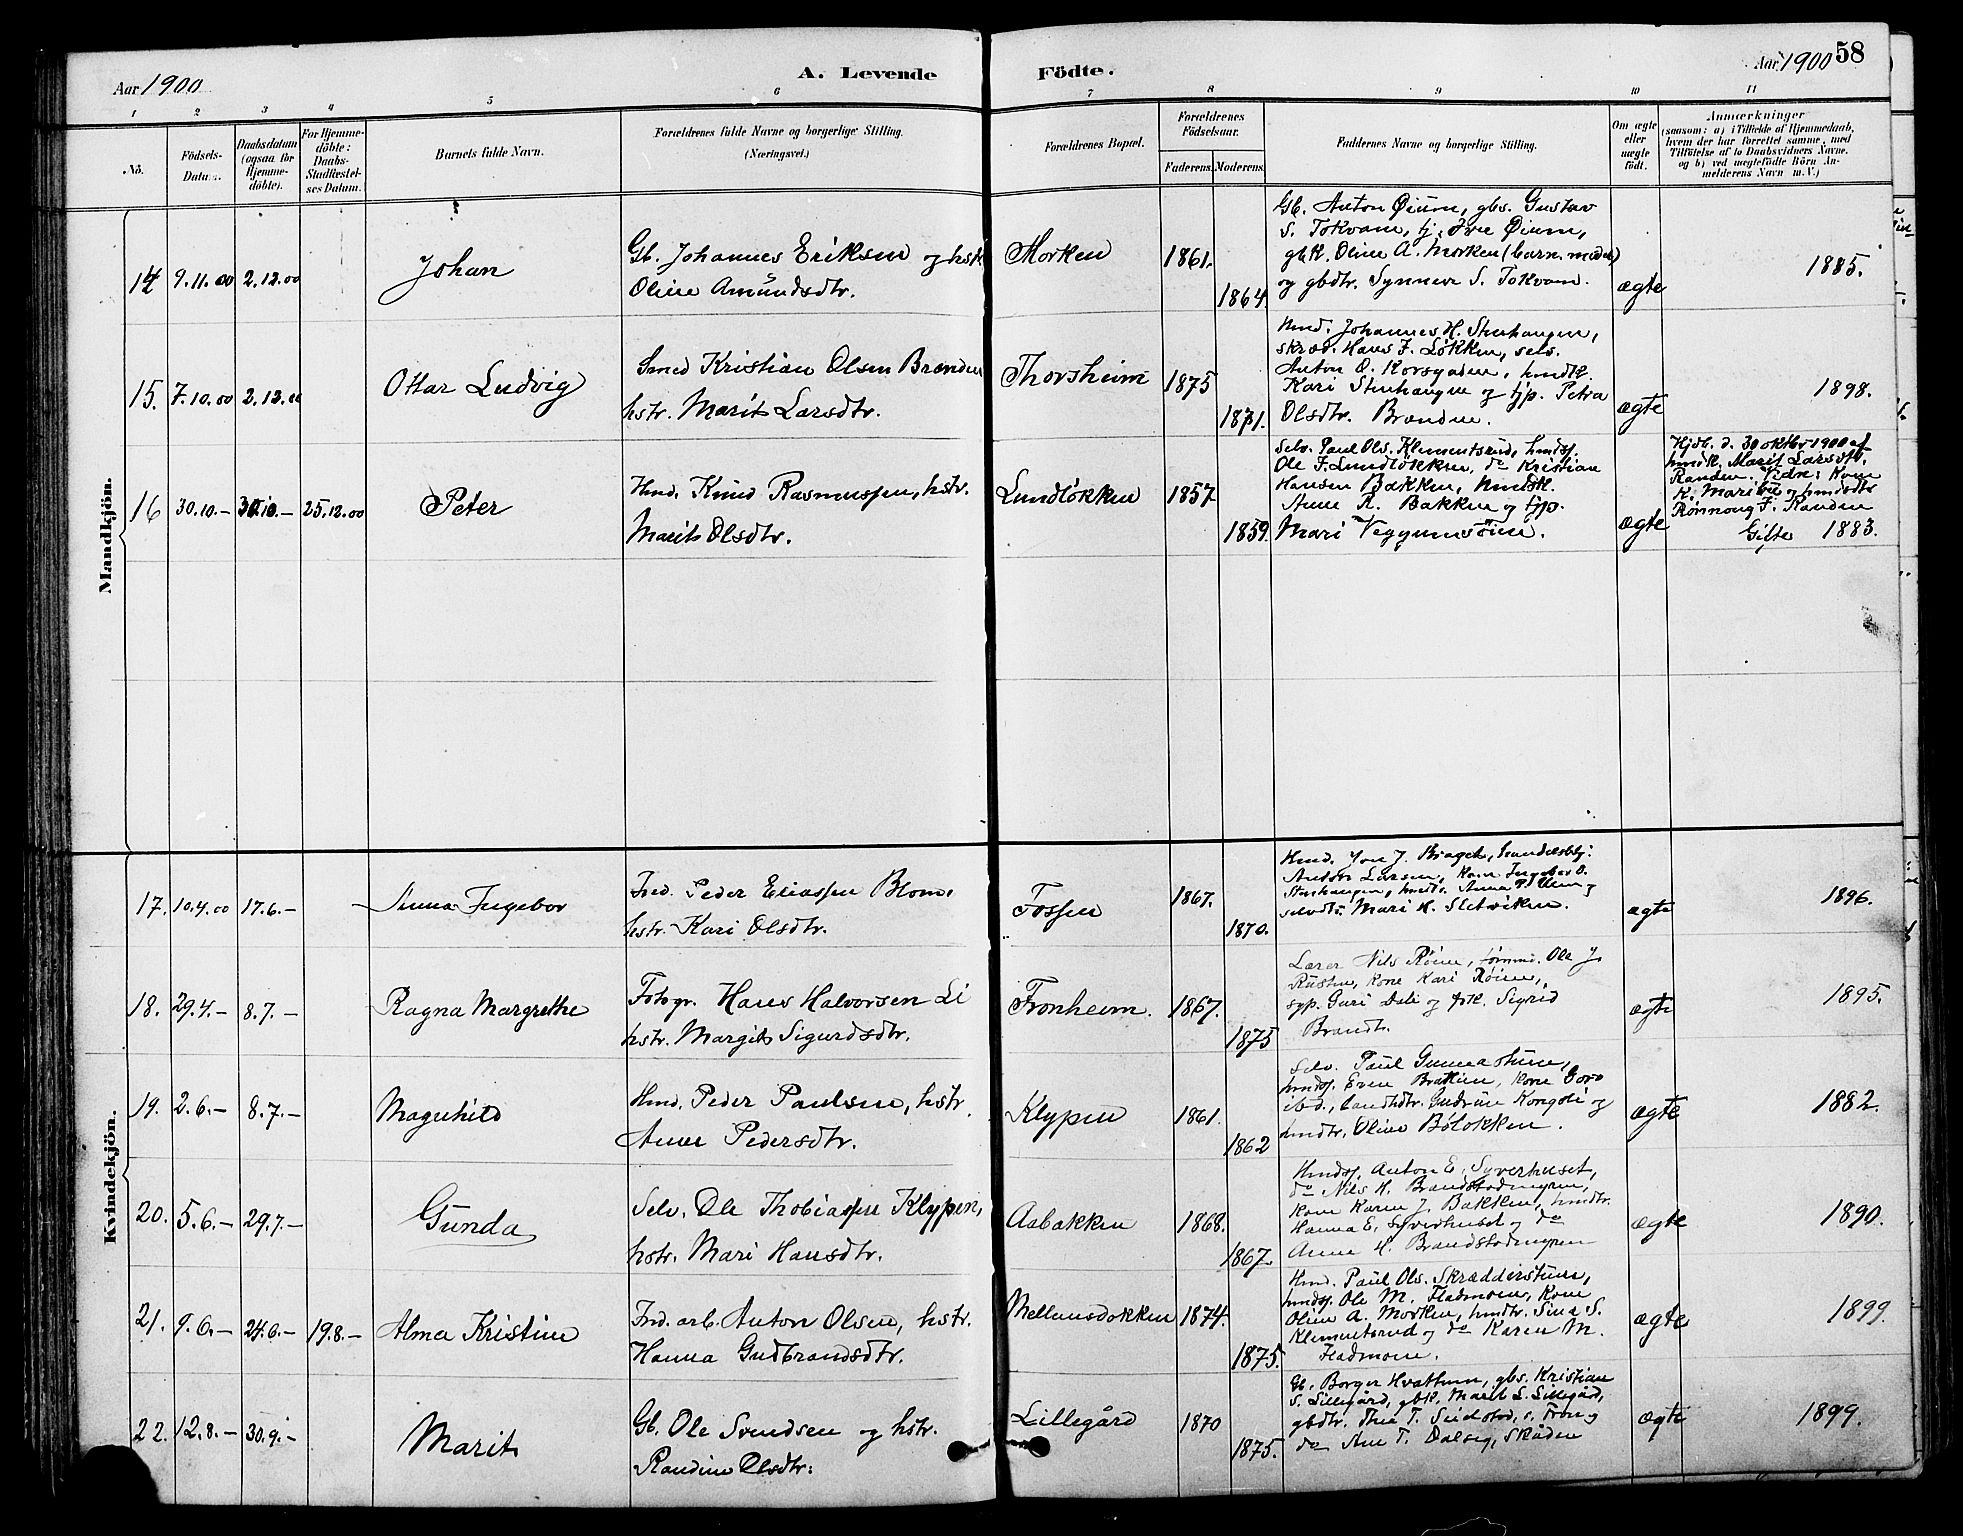 Aar 1900
A. Levende
Födte.
Aar 1900
58
1 2 3 4 5 6 7 8 9 10 11
No.
Födsels-
Datum.
Daabsdatum
(ogsaa for
Hjemme-
döbte).
For Hjemme-
döbte:
Daabs-
Stadfæstel-
ses Datum.
Barnets fulde Navn.
Forældrenes fulde Navne og borgerlige Stilling.
(Næringsvei.)
Forældrenes Bopæl.
Forældrenes
Födselsaar.
Faderens. Moderens.
Faddernes Navne og borgerlige Stilling.
Om ægte
eller
uægte
födt.
Anmærkninger
(saasom: a) i Tilfælde af Hjemmedaab,
hvem der har forrettet samme, med
Tilföielse af to Daabsvidners Navne,
og b) ved uægtefödte Börn An-
melderens Navn m. V.)
Mandkjön.
14 9.11.00 2.12.00
Johan
Gb. Johannes Eriksen og hstr.
Oline Amundsdtr.
Morken
1861.
1864.
Gb. Anton Øium, gbs. Gustav
S. Tokvam, tj. Øium,
gbk. Oline A. Morken (barn. moder)
og gbdtr. Synneve S. Tokvam.
ægte
1885.
15. 7.10.00 2.12.00
Ottar Ludvig
Smed Kristian Olsen Brænden
hstr. Marit Larsdtr.
Thorsheim
1875
1871.
Hmd. Johannes H. Stenhaugen,
skræd. Hans F. Løkken, selv.
Anton O. Korsgaden, hmdk.
Kari Stenhaugen og tjp. Petra
Olsdtr. Brænden.
ægte
1898.
16 30.10.- 30.10.- 25.12.00
Peter
Hmd. Knud Rasmussen, hstr.
Marit Olsdtr.
Lundløkken
1857
1859.
Selv. Paul Ols. Klementsrud, hmdsj.
Ole F. Lundløkken, do Kristian
Hansen Bakken, hmdsk.
Anne R. Bakken og tjp.
Mari Veggumsøien.
ægte
Hjdb. d. 30 oktbr 1900 af
hmdk. Marit Larsdtr.
Randen. Vidne: Kone
K. Marit og hmdsdtr
Rønnaug F. Randen
Gifte 1883.
Kvindekjön.
17. 10.4.00 17.6.-
Anna Ingebor
Ind. Peder Eliassen Blom.
hstr. Kari Olsdtr.
Fossen
1867.
1870.
Hmd. Jon J. Braget, handelsbtj.
Anton Larsen, Kone Ingebor O.
Stenhaugen, hmdtr. Anna og
selvdtr. Mari H. Sletviken.
ægte
1896.
18. 29.4.- 8.7.-
Ragna Margrethe
Fotogr. Hans Halvorsen Li
hstr. Margit Sigurdsdtr.
Fronheim.
1867.
1875
Lærer Nils Røine, tømmd. Ole J.
Rusten, kone Kari Røine,
syp. Guri Deli og frk. Sigrid
Brandt.
ægte
1895.
19. 2.6.- 8.7.-
Magnhild
Hmd. Peder Paulsen, hstr.
Anne Pedersdtr.
Klypen
1861.
1862
Selv. Paul Gunnastuen,
hmdsj. Even Bratlien, kone Goro
ibid., landhdtr. Gudrun Kongsli og
hmdtr. Oline Bøløkken.
ægte
1882.
20. 5.6.- 29.7.-
Gunda
Selv. Ole Thobiassen Klypen,
hstr. Mari Hansdtr.
Aabakken
1868.
1867.
Hmdsj. Anton E. Syverhuset,
do Nils H. Brandstadmyren,
kone Karen J. Bakken, hmdtr.
Hanna E. Syverhuset og do
Anne H. Brandstadmyren
ægte
1890.
21. 9.6.- 24.6.- 19.8.-
Alma Kristine
Ind. arb. Anton Olsen, hstr.
Hanna Gudbrandsdtr.
Mellumsløkken
1874.
1875.
Hmd. Paul Ols. Skrædderstuen,
hmdsj. Ole M. Fladmoen, Kone
Oline A. Morken, hmdtr. Sina S.
Klementsrud og do Karen M.
Fladmoen.
ægte
1899.
22. 12.8.- 30.9.-
Marit
Gb. Ole Svendsen og hstr.
Randine Olsdtr.
Lillegård
1870
1875.
Gb. Borger Hvattum, gbs. Kristian
S. Lillegård, gbk. Marit S. Lillegård,
gbdtr. Thea T. Sulstad, s. Fron og
do Ane T. Dalseg, Skåden
ægte
1899.